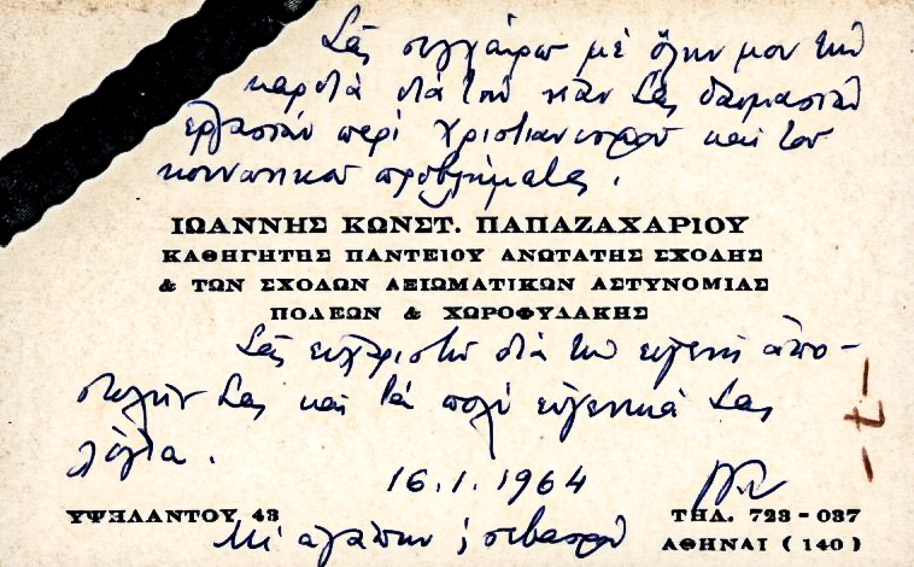 Σᾶς συγχαίρω μὲ ὅλην μου τὴν
καρδιὰ διὰ τὴν νέαν Σας θαυμασίαν
ἐργασίαν περὶ Χριστιανισμοῦ καὶ του
κοινωνικοῦ προβλήματος.
ΙΩΑΝΝΗΣ ΚΩΝΣΤ. ΠΑΠΑΖΑΧΑΡΙΟΥ
ΚΑΘΗΓΗΤΗΣ ΠΑΝΤΕΙΟΥ ΑΝΩΤΑΤΗΣ ΣΧΟΛΗΣ
& ΤΩΝ ΣΧΟΛΩΝ ΑΞΙΩΜΑΤΙΚΩΝ ΑΣΤΥΝΟΜΙΑΣ
ΠΟΛΕΩΝ & ΧΩΡΟΦΥΛΑΚΗΣ
Σᾶς εὐχαριστῶ διὰ τὴν εὐγενῆ ἀπο-
στολήν Σας καὶ τὰ πολὺ εὐγενικά Σας
λόγια.
16.1.1964
ΥΨΗΛΑΝΤΟΥ 43
ΤΗΛ. 723-037
Μὲ ἀγάπην & σεβασμὸ
ΑΘΗΝΑΙ (140)